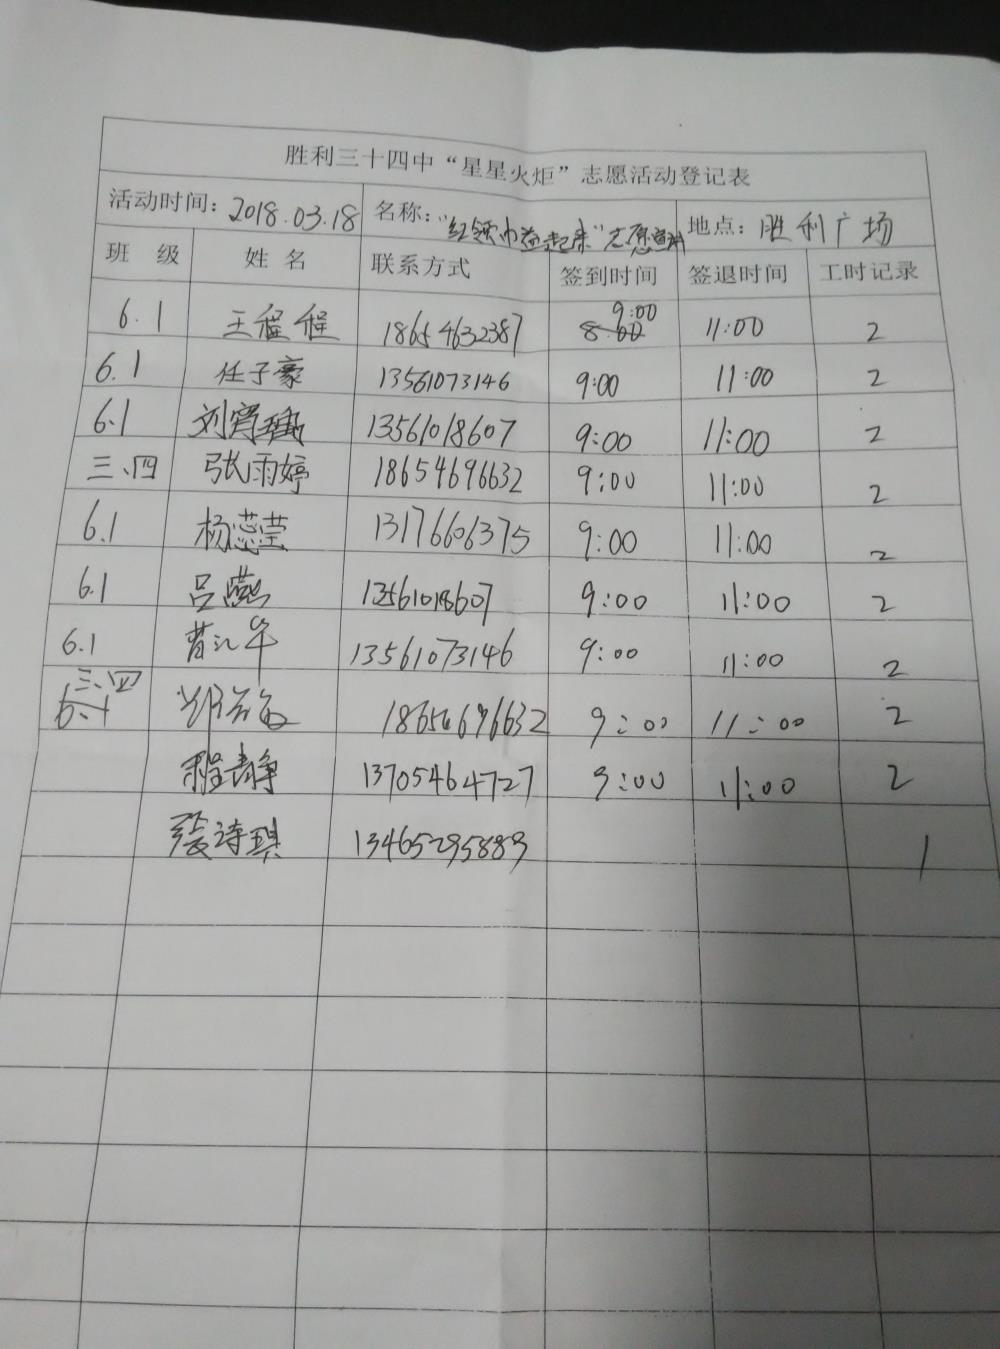 胜利三十四中“星星火炬”志愿活动登记表
活动时间：2018.03.18 名称：“红领巾益起来”志愿 地点：胜利广场
班 级 姓 名 联系方式 签到时间 签退时间 工时记录
6.1 王程程 18654632387 8:00 9:00 11:00 2
6.1 任子豪 13561073146 9:00 11:00 2
6.1 刘宵 13561018607 9:00 11:00 2
三、四 张雨婷 18654696632 9:00 11:00 2
6.1 杨蕊莹 13176606375 9:00 11:00 2
6.1 吕 13561018607 9:00 11:00 2
6.1 13561073146 9:00 11:00 2
三、四 6.1 18654696632 9:00 11:00 2
程静 13705464727 9:00 11:00 2
张诗琪 13465295889 1